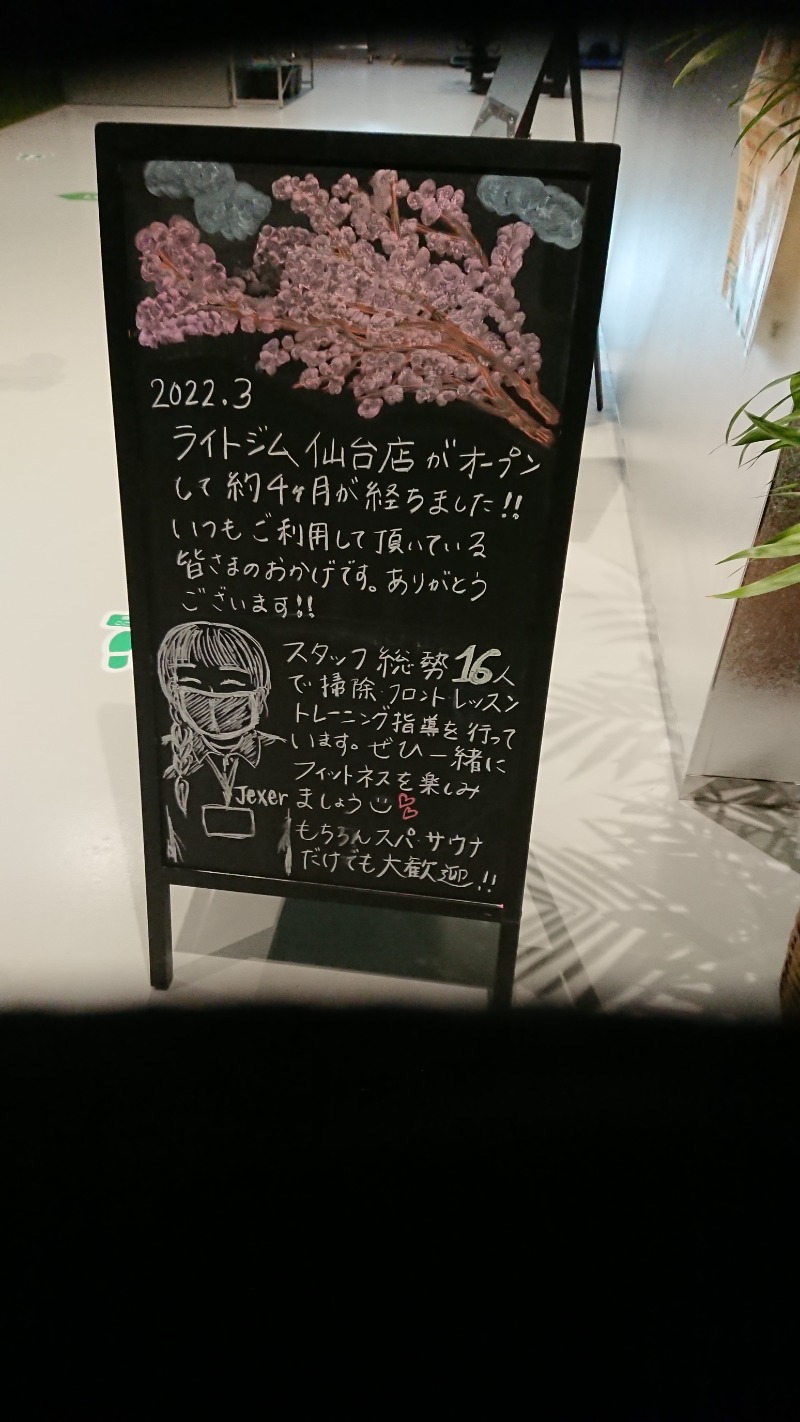 2022.3
ライトジム 仙台店 がオープン
して 約4ヶ月が 経ちました!!
いつも ご利用して頂いている
皆さまのおかげです。ありがとう
ございます!!
スタッフ 総勢16人
で 掃除・フロント・レッスン
トレーニング指導を行って
います。ぜひ一緒に
フィットネスを楽しみ
Jexer
ましょう
もちろんスパ・サウナ
だけでも大歓迎!!